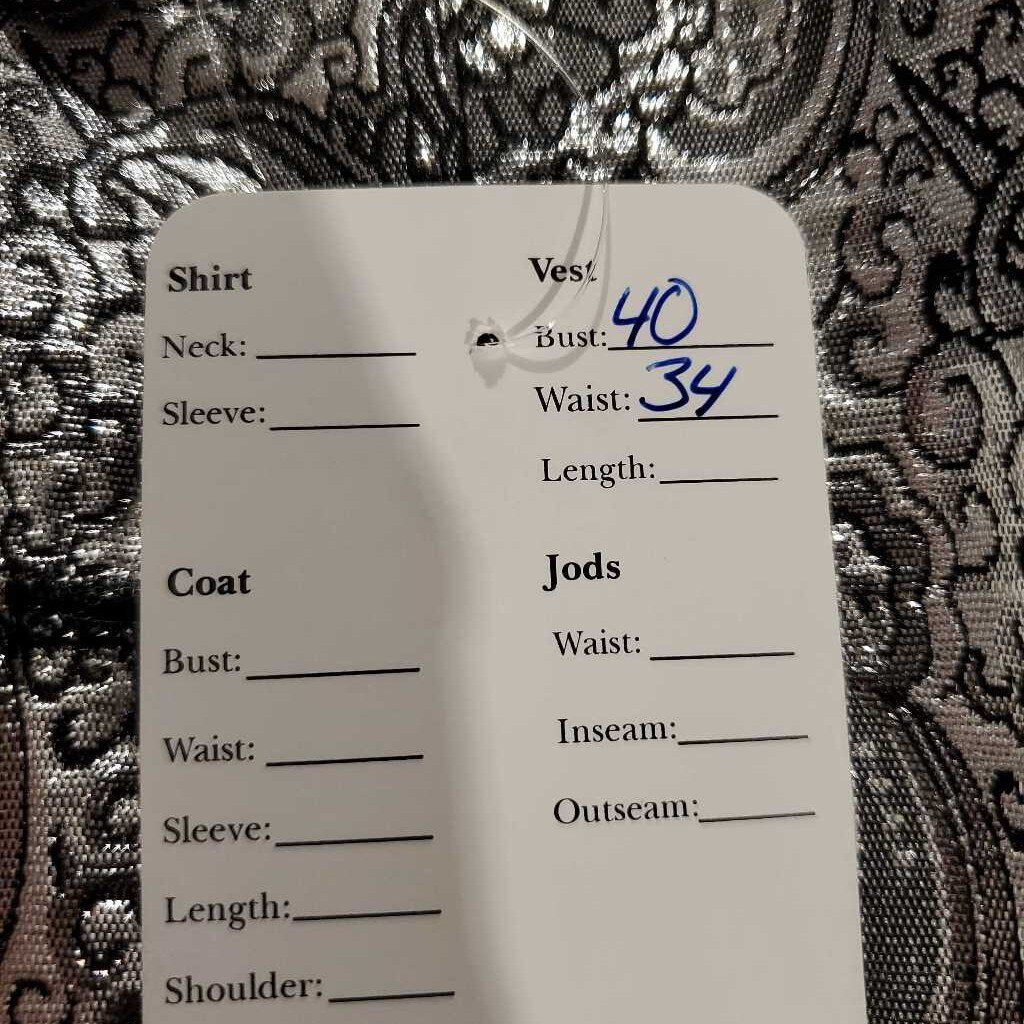 Shirt
Neck:
Sleeve:
Vest
Bust: 40
Waist: 34
Length:
Coat
Bust:
Waist:
Sleeve:
Length:
Shoulder:
Jods
Waist:
Inseam:
Outseam: